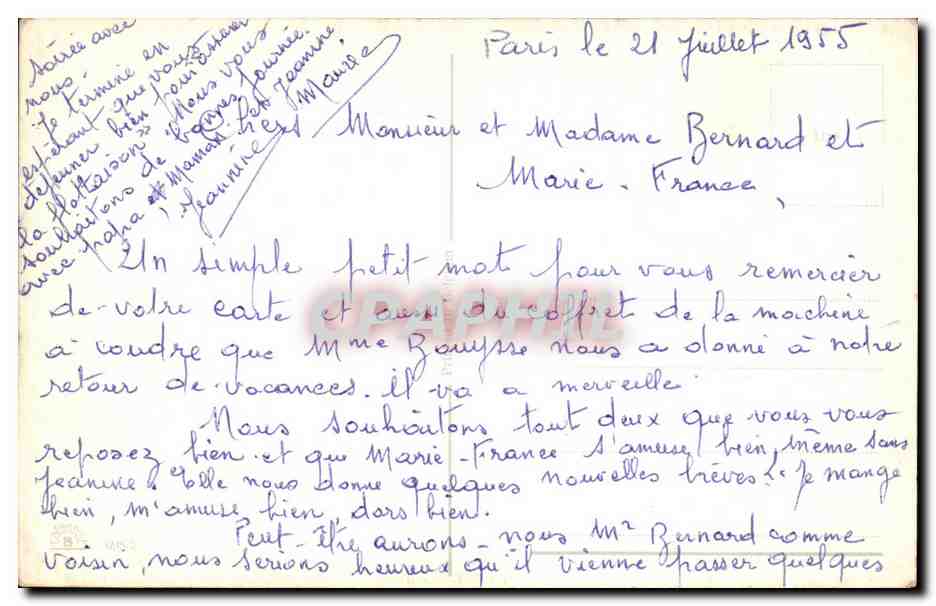 Paris le 21 Juillet 1955
Chers Monsieur et Madame Bernard et
Marie-France,
Un simple petit mot pour vous remercier
de votre carte et aussi du coffret de la machine
à coudre que Mme Bouysse nous a donné à notre
retour de vacances. il va a merveille.
Nous souhaitons tout deux que vous vous
reposez bien et que Marie-France s'amuse bien, même sans
Jeanine. Elle nous donne quelques nouvelles brèves: "Je mange
bien, m'amuse bien, dors bien.
Peut-être aurons-nous Mr Bernard comme
voisin, nous serions heureux qu'il vienne passer quelques
soirée avec
nous.
Je termine en
espérant que vous
déjeuner bien pour
la flottaison". Nous vous
souhaitons de bonnes journée
avec papa et Maman et Jeannine.
Jeannine Maurice
CPAPHIL